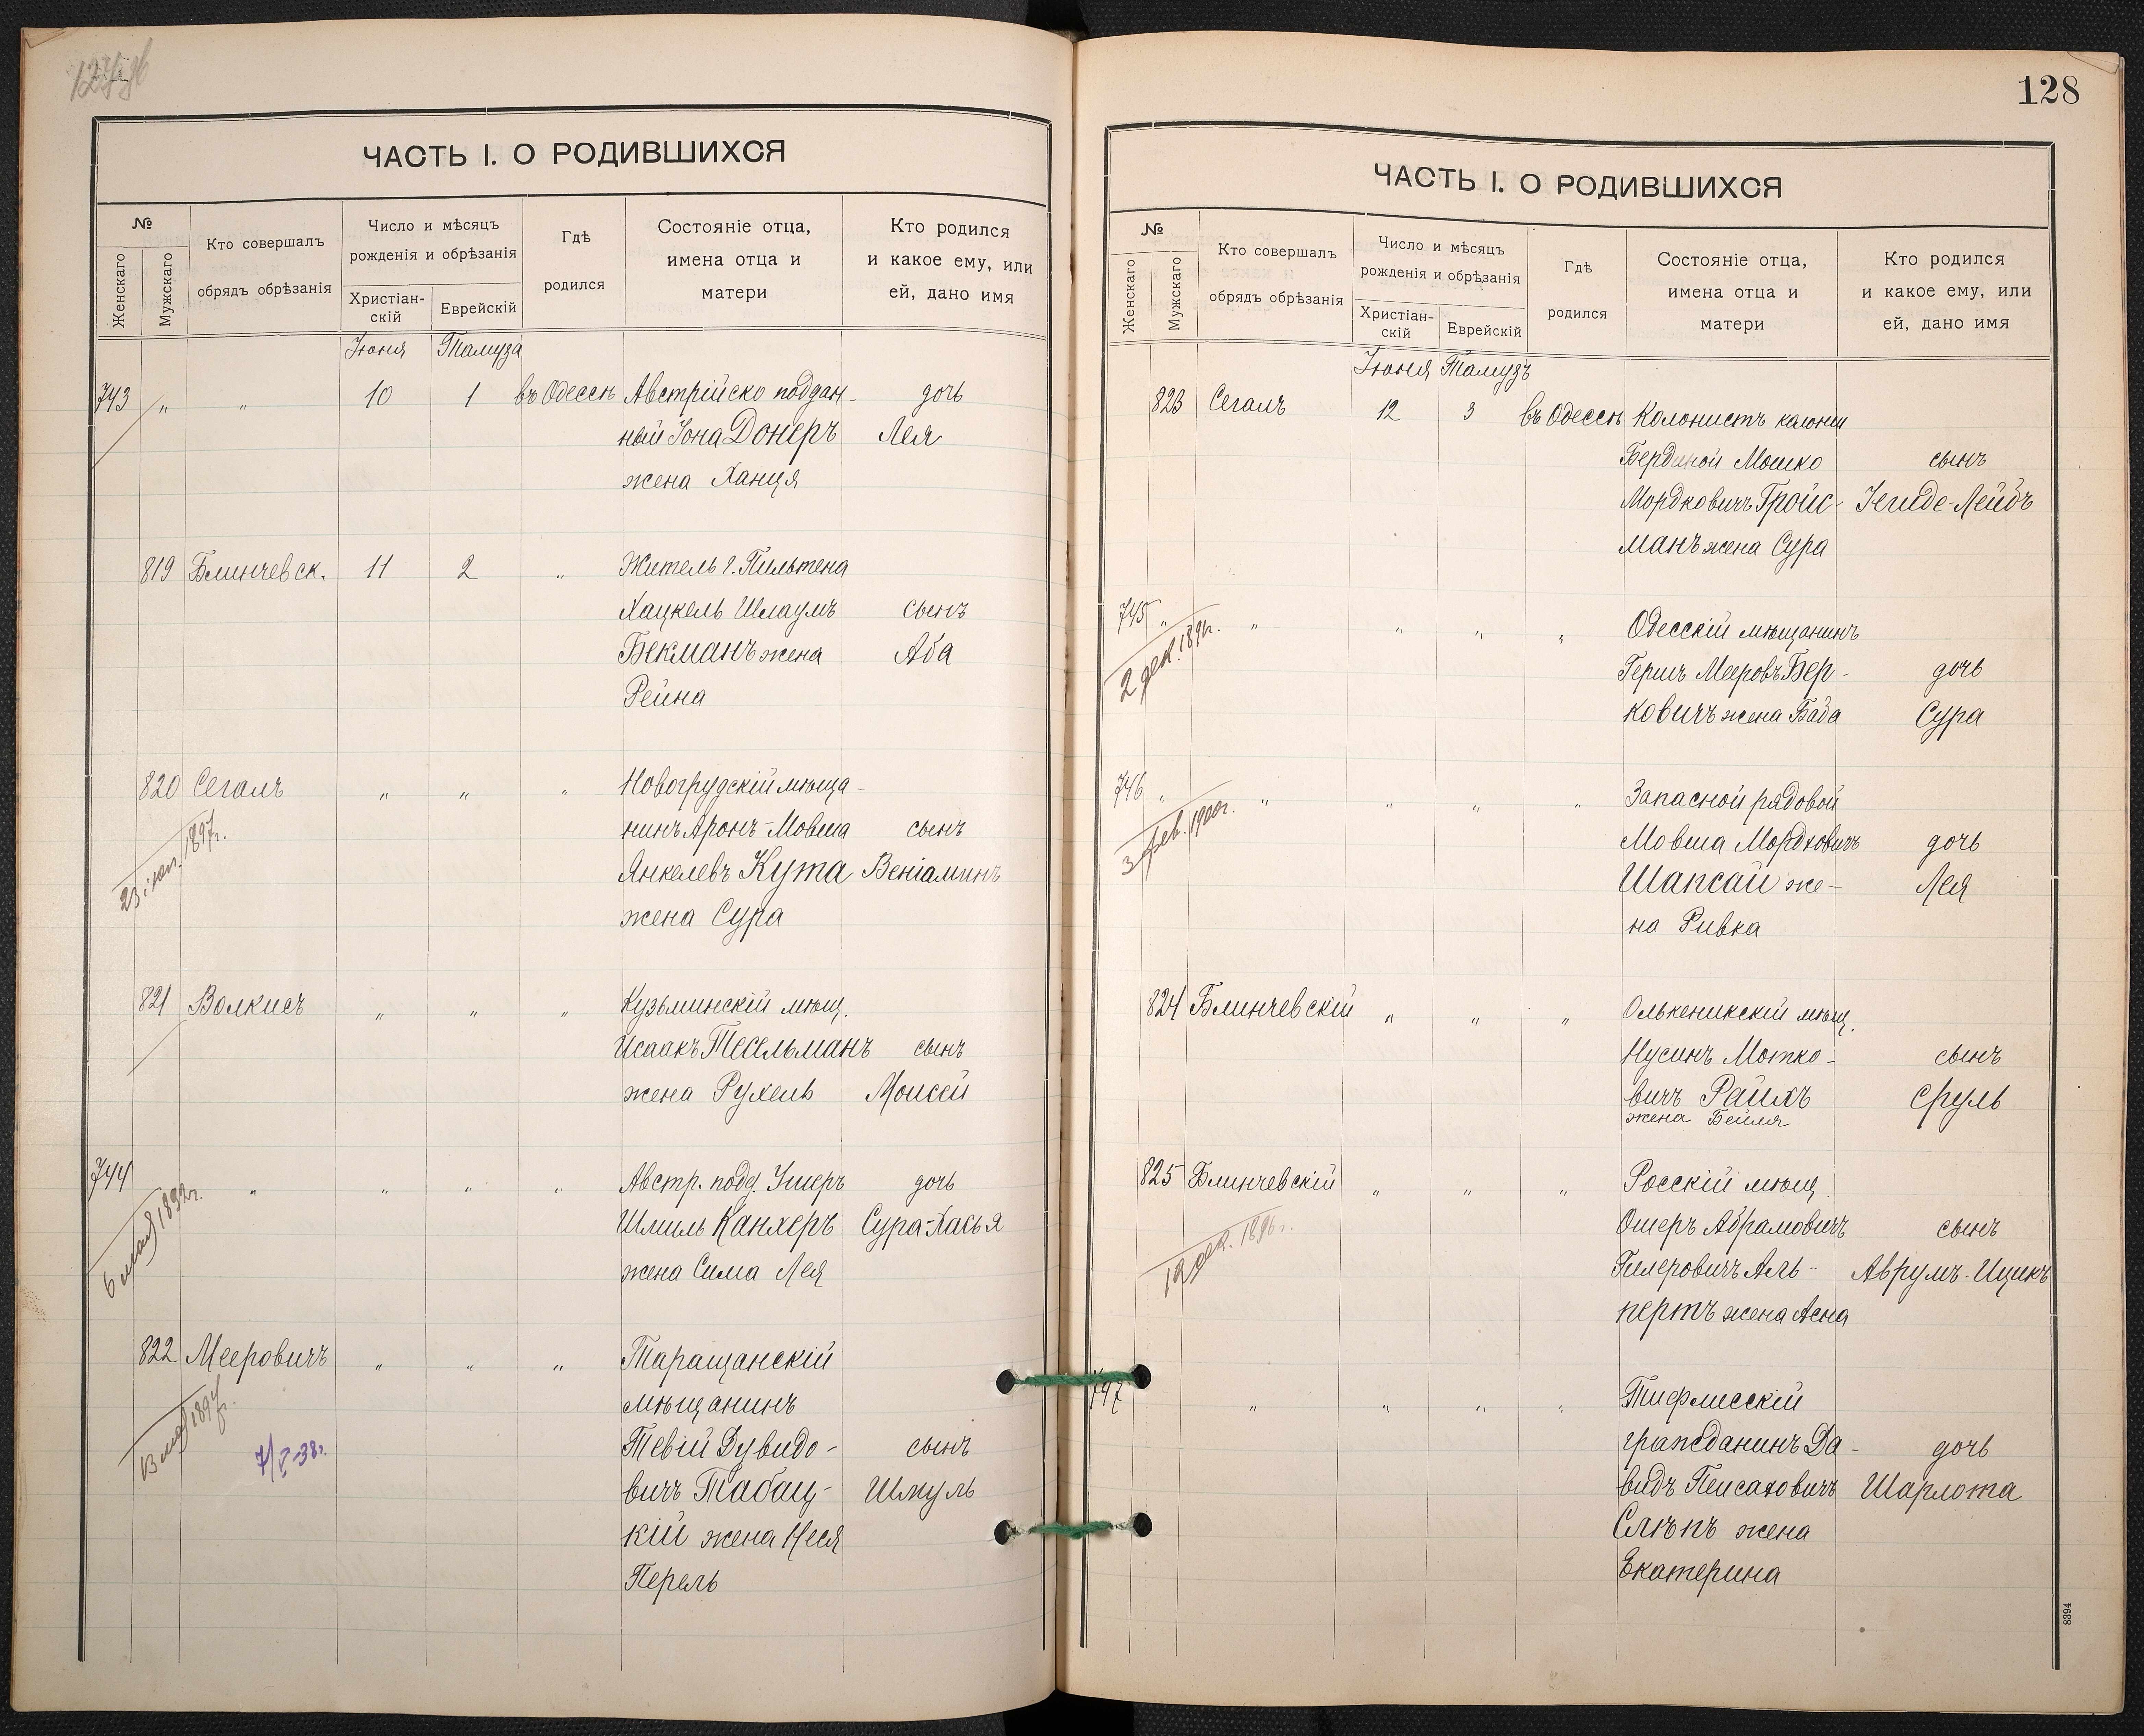 ЧАСТЬ I. О РОДИВШИХСЯ
№
Женскаго
Мужскаго
Кто совершалъ
обрядъ обрѣзанія
Число и мѣсяцъ
рожденія и обрѣзанія
Христіан-
скій
Еврейскій
Гдѣ
родился
Состояніе отца,
имена отца и
матери
Кто родился
и какое ему, или
ей, дано имя
Іюня Тамуза
743 " " 10 1 въ Одессѣ Австрійско поддан- дочь
ный Іона Донеръ Лея
жена Ханця
819 Блинчевск. 11 2 " Житель г. Пильтена
Хацкель Шлаумъ сынъ
Бекманъ жена Аба
Рейна
820 Сегалъ " " " Новогрудскій мѣща-
нинъ Аронъ-Мовша сынъ
Янкелевъ Кута Веніаминъ
жена Сура
1897г.
821 Волкисъ " " " Кузьминскій мѣщ.
Исаакъ Тесельманъ сынъ
жена Рухель Моисей
744 " " " " Австр. подд. Ушеръ дочь
Шмиль Канхеръ Сура-Хасья
жена Сима Лея
6 мая
822 Мееровичъ " " " Таращанскій
мѣщанинъ
Тевій Дувидо- сынъ
вичъ Табац- Шмуль
кій жена Неся
Перель
128
ЧАСТЬ I. О РОДИВШИХСЯ
№
Женскаго
Мужскаго
Кто совершалъ
обрядъ обрѣзанія
Число и мѣсяцъ
рожденія и обрѣзанія
Христіан-
скій
Еврейскій
Гдѣ
родился
Состояніе отца,
имена отца и
матери
Кто родился
и какое ему, или
ей, дано имя
Іюня Тамузъ
823 Сегалъ 12 3 въ Одессѣ Колонистъ колоніи
Мошко сынъ
Мордковичъ Гройс- Іегиде-Лейбъ
манъ жена Сура
745 " " " " " Одесскій мѣщанинъ
Гершъ Мееровъ Бер- дочь
ковичъ жена Сура
2 дек. 1896г.
746 " " " " " Запасной рядовой
Мовша Мордковичъ дочь
Шапсай же- Лея
на Ривка
3 фев. 1900г.
824 Блинчевскій " " " Олькеникскій мѣщ.
Нусинъ Мотко- сынъ
вичъ Райхъ Сруль
жена Бейля
825 Блинчевскій " " " Росскій мѣщ.
Ошеръ Абрамовичъ сынъ
Гилеровичъ Аль- Аврумъ-Ицикъ
пертъ жена Асна
дек. 1896г.
747 " " " " Тифлисскій
гражданинъ Да- дочь
видъ Пейсаховичъ Шарлота
Слѣпъ жена
Екатерина
8394